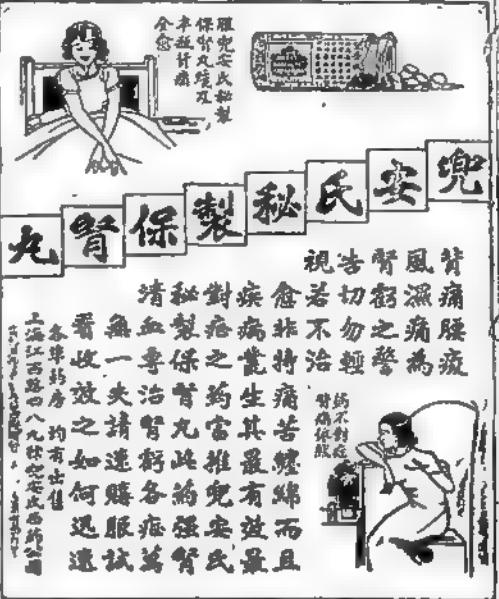 服兜安氏秘製
保腎丸後凡
辛
全愈
兜安氏秘製保腎丸
背痛腰痠
風濕痛為
腎虧之警
告切勿輕
視若不治
愈非特痛苦纏綿而且
疾病叢生其最有效最
對症之藥當推兜安氏
秘製保腎丸此藥強腎
清血專治腎虧各症萬
無一失請速購服試
看收效之如何迅速
藥不對症
腎痛依然
各埠藥房均有出售
上海江西路四八九號兜安氏西藥公司